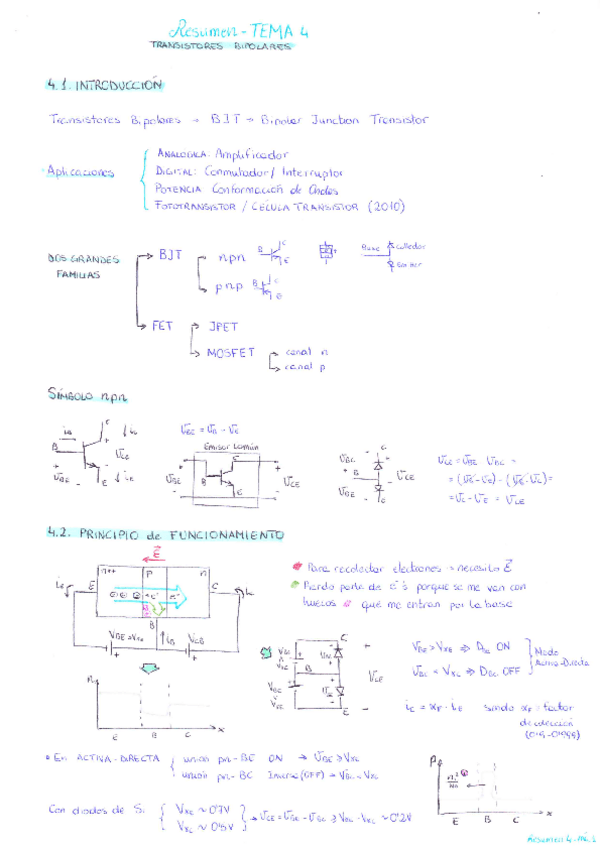 Resumen - TEMA 4
TRANSISTORES BIPOLARES
4.1. INTRODUCCIÓN
Transistores Bipolares → BJT → Bipolar Junction Transistor
Aplicaciones
ANALÓGICA: Amplificador
DIGITAL: Conmutador / Interruptor
POTENCIA Conformación de Ondas
FOTOTRANSISTOR / CÉLULA TRANSISTOR (2010)
DOS GRANDES
FAMILIAS
BJT
npn
B C E
Base Colector
Emisor
pnp
B C
FET
JFET
MOSFET
canal n
canal p
SÍMBOLO npn
VBC = VB - VC
Emisor Común
B C E
VBE
VCE
VBC
VCE = VBE - VBC =
= (VB - VC) - (VB - VC) =
= VC - VE = VCE
4.2. PRINCIPIO de FUNCIONAMIENTO
E
n++ P n
E C
B
VBE > VγE
iB
VCB
Para recolectar electrones → necesito E
Pierdo parte de e⁻s porque se me van con
huecos que me entran por la base
VBE > VγE ⇒ DBE ON
VBC < VγC ⇒ DBC OFF
Modo
Activa-Directa
iC = αF · iE siendo αF = factor
(0.9-0.999)
n
E B C x
En ACTIVA-DIRECTA
unión pn-BE ON → VBE ≥ VγE
unión pn-BC Inversa (OFF) → VBC < VγC
Con diodos de Si
VγE ~ 0'7V
VγC ~ 0'5V
→ VCE = VBE - VBC ≥ VγE - VγC ~ 0'2V
P
E B C x
Resumen 4 - Pág. 1